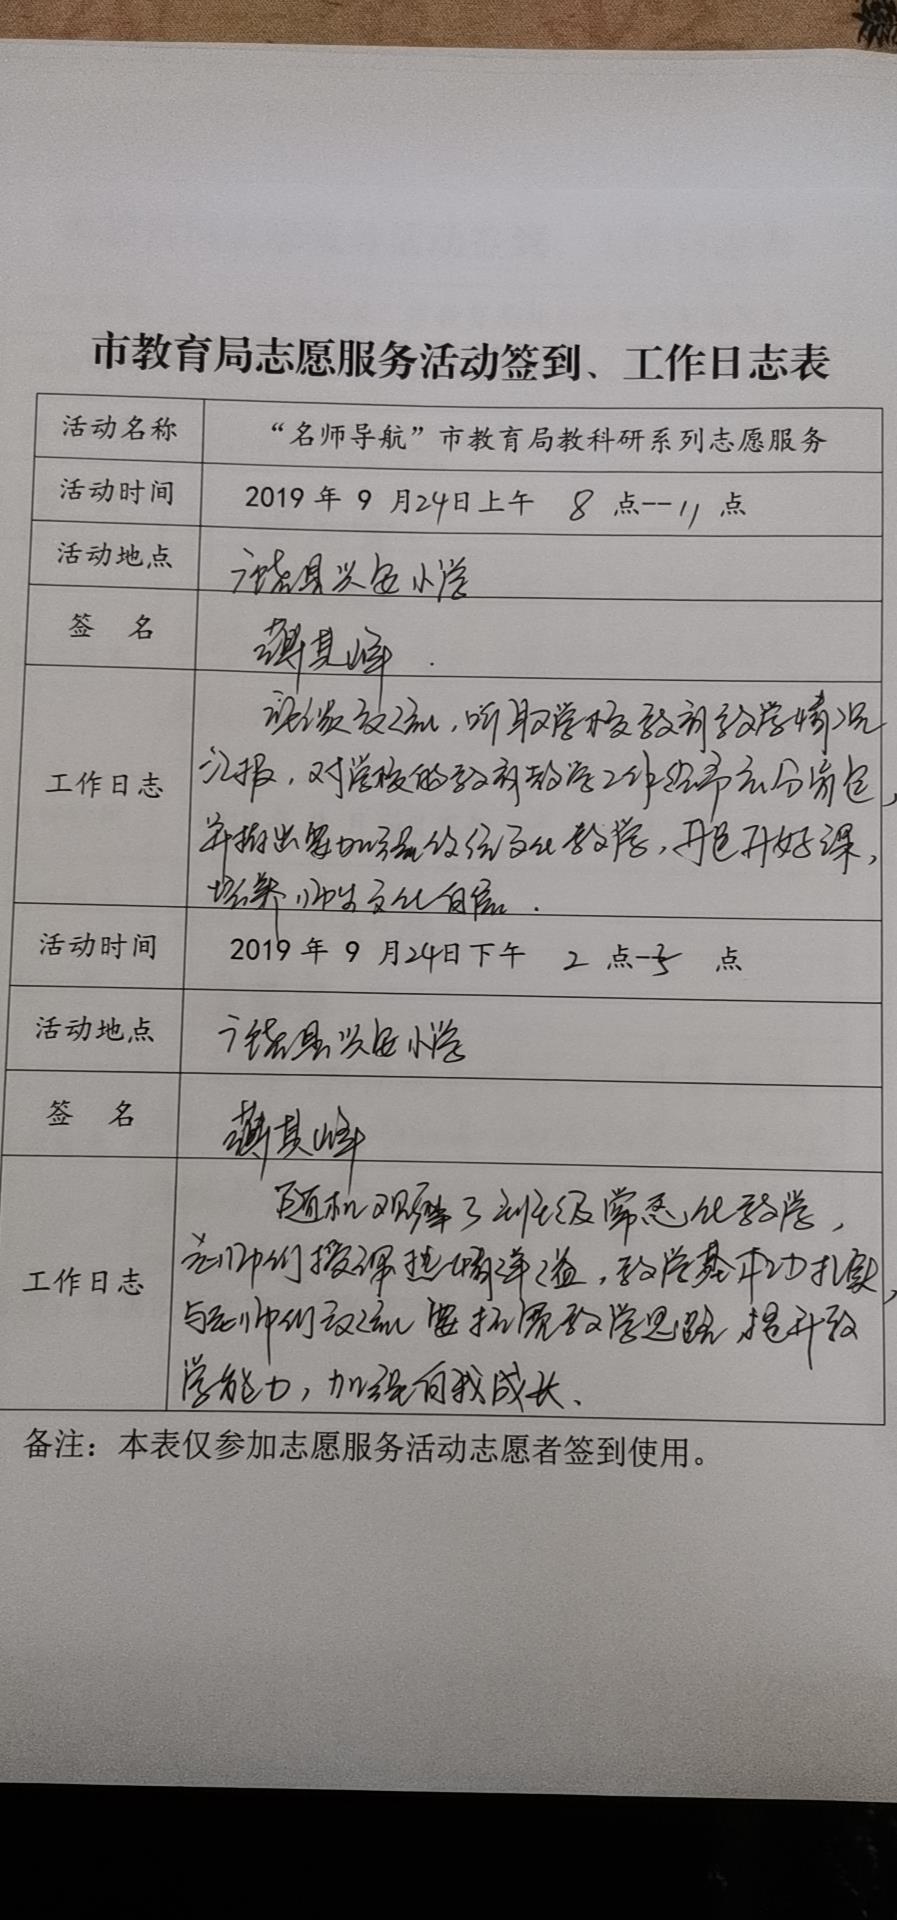 市教育局志愿服务活动签到、工作日志表
活动名称 “名师导航”市教育局教科研系列志愿服务
活动时间 2019 年 9 月24日上午 8 点--11 点
活动地点 广饶县兴安小学
签 名 薄其峰
座谈交流,听取学校教育教学情况
工作日志 汇报,对学校的教育教学工作给予充分肯定,
并指出要加强传统文化教学,开足开好课,
培养师生文化自信.
活动时间 2019 年 9 月24日下午 2 点-5 点
活动地点 广饶县兴安小学
签 名 薄其峰
随机观摩了年级常态化教学,
工作日志 老师们授课热情洋溢,教学基本功扎实,
与老师们交流要拓宽教学思路,提升教
学能力,加强自我成长.
备注:本表仅参加志愿服务活动志愿者签到使用。